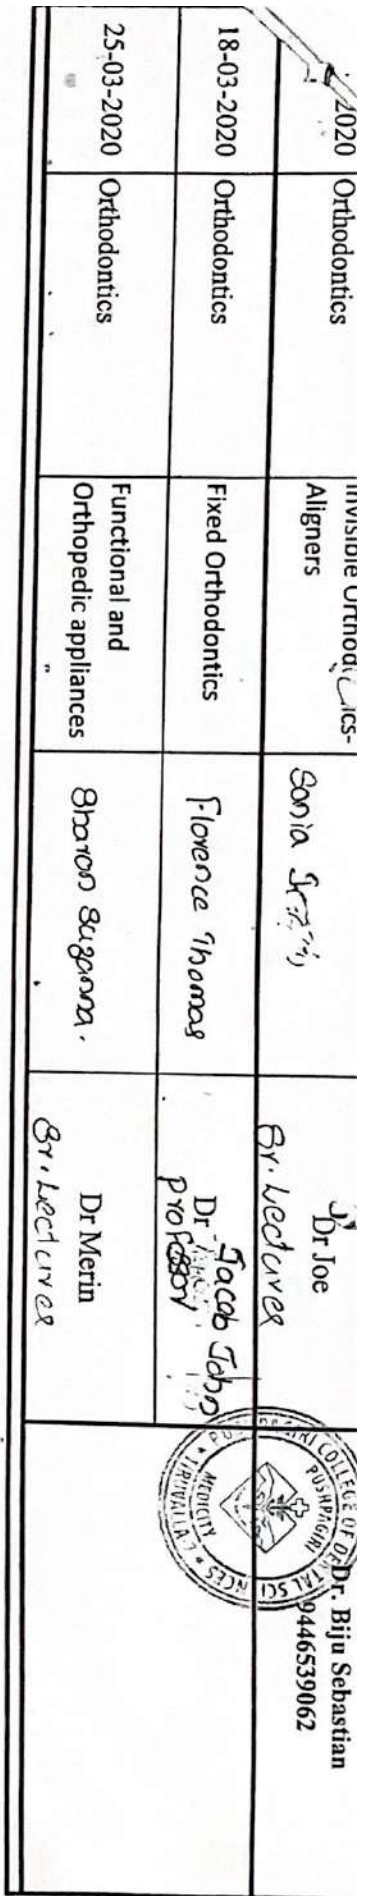 2020 Orthodontics
Aligners
Sonia
Dr Joe
Sr. Lecturer
Dr. Biju Sebastian
9446539062
18-03-2020 Orthodontics
Fixed Orthodontics
Florence Thomas
Dr Jacob John
professor
25-03-2020 Orthodontics
Functional and
Orthopedic appliances
Sharon Suzanna.
Dr Merin
Sr. Lecturer
PUSHPAGIRI COLLEGE OF DENTAL SCIENCES
PUSHPAGIRI
MEDICITY
TIRUVALLA-7